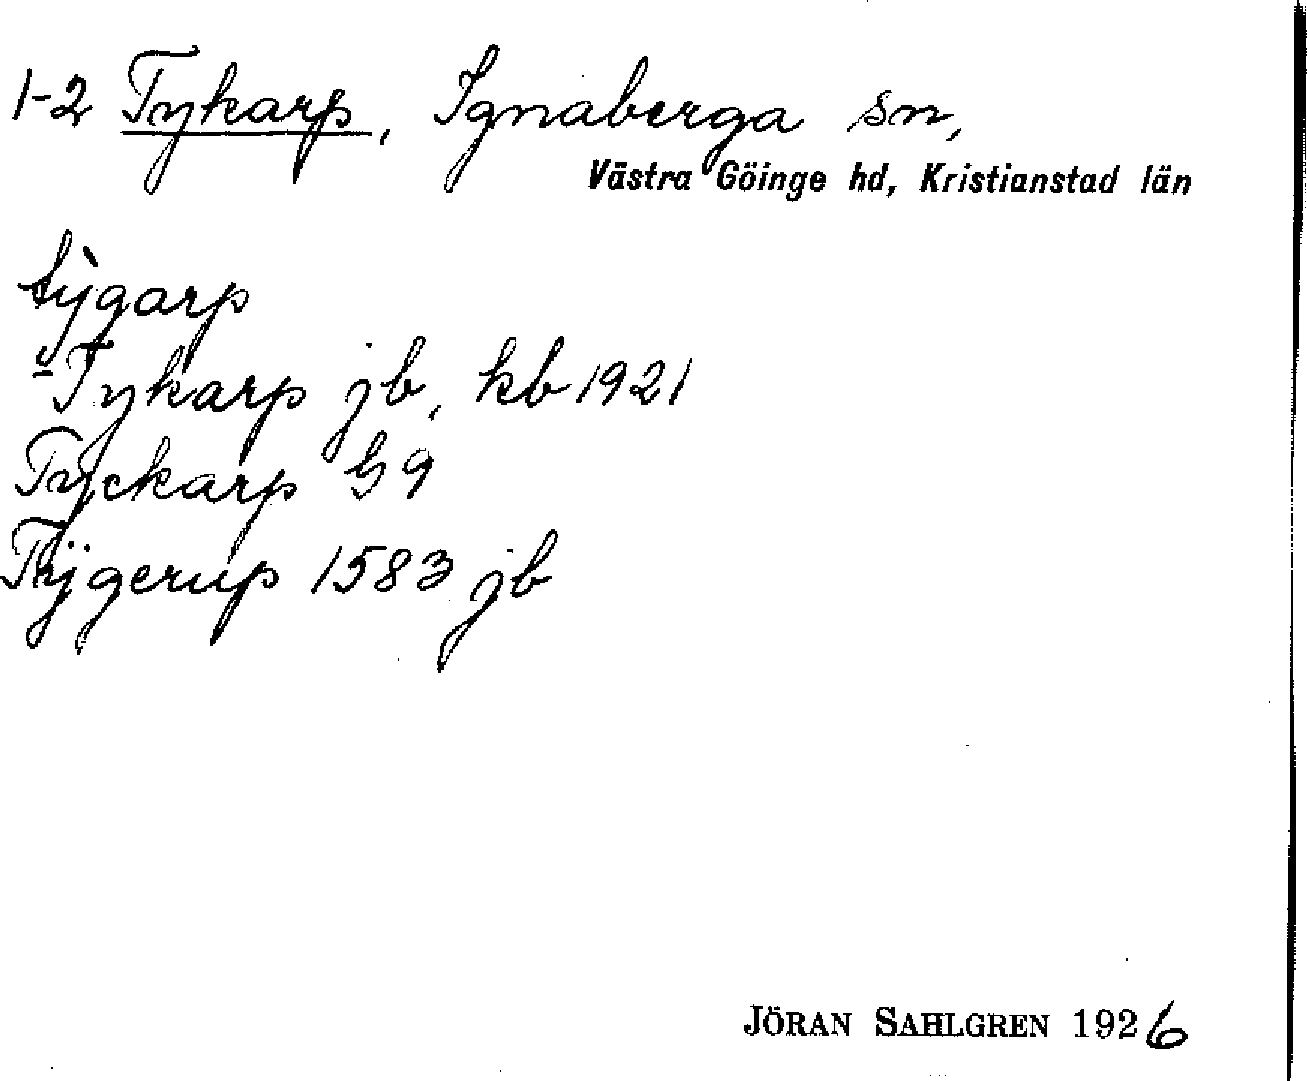 1-2 Tykarp, Ignaberga sn,
Västra Göinge hd, Kristianstad län
tỳgarp
Tykarp jb, kb 1921
Tyckarp G 9
Tÿgerup 1583 jb
JÖRAN SAHLGREN 1926